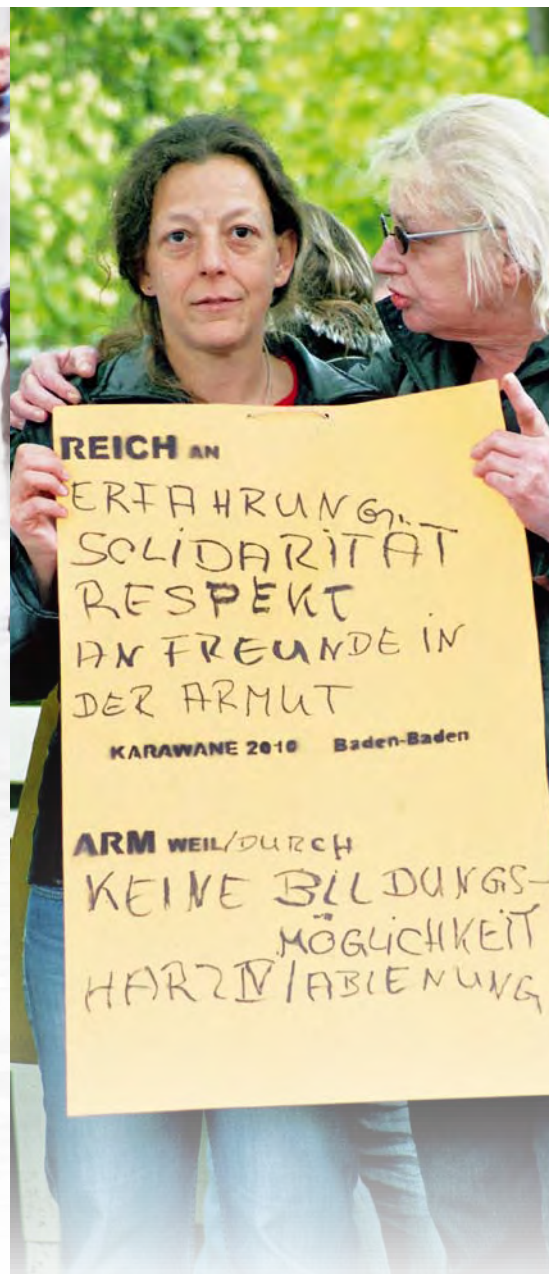 REICH AN
ERFAHRUNG
SOLIDARITÄT
RESPEKT
AN FREUNDE IN
DER ARMUT
KARAWANE 2010 Baden-Baden
ARM WEIL/DURCH
KEINE BILDUNGS-
MÖGLICHKEIT
HARZ IV/ABLENUNG